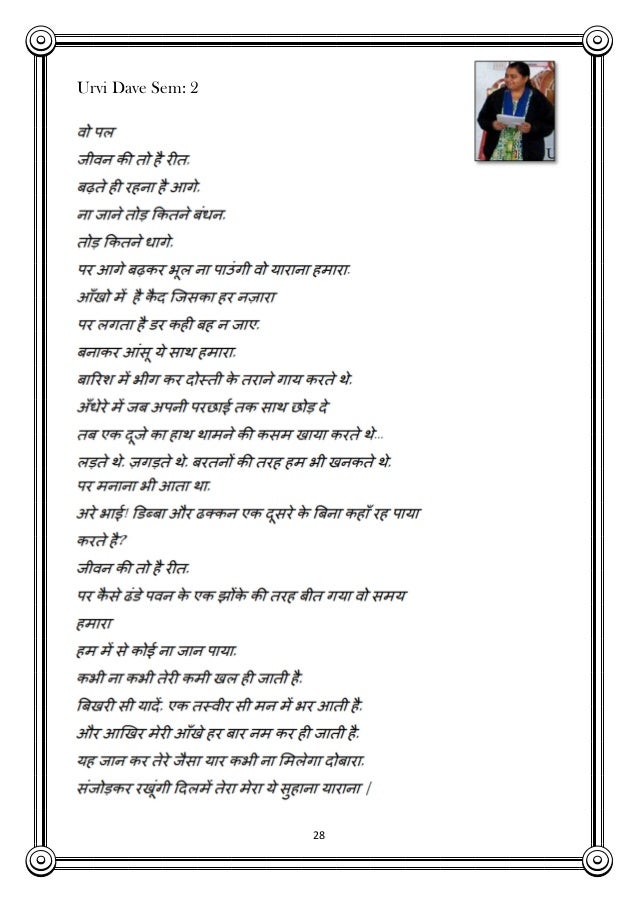 Urvi Dave Sem: 2
वो पल
जीवन की तो है रीत,
बढ़ते ही रहना है आगे,
ना जाने तोड़ कितने बंधन,
तोड़ कितने धागे,
पर आगे बढ़कर भूल ना पाउंगी वो याराना हमारा,
आँखो में है कैद जिसका हर नज़ारा
पर लगता है डर कही बह न जाए,
बनाकर आंसू ये साथ हमारा,
बारिश में भीग कर दोस्ती के तराने गाय करते थे,
अँधेरे में जब अपनी परछाई तक साथ छोड़ दे
तब एक दूजे का हाथ थामने की कसम खाया करते थे...
लड़ते थे, ज़गड़ते थे, बरतनों की तरह हम भी खनकते थे,
पर मनाना भी आता था,
अरे भाई! डिब्बा और ढक्कन एक दूसरे के बिना कहाँ रह पाया
करते है?
जीवन की तो है रीत,
पर कैसे ढंडे पवन के एक झोंके की तरह बीत गया वो समय
हमारा
हम में से कोई ना जान पाया,
कभी ना कभी तेरी कमी खल ही जाती है,
बिखरी सी यादें, एक तस्वीर सी मन में भर आती है,
और आखिर मेरी आँखे हर बार नम कर ही जाती है,
यह जान कर तेरे जैसा यार कभी ना मिलेगा दोबारा,
संजोड़कर रखूंगी दिलमें तेरा मेरा ये सुहाना याराना |
28